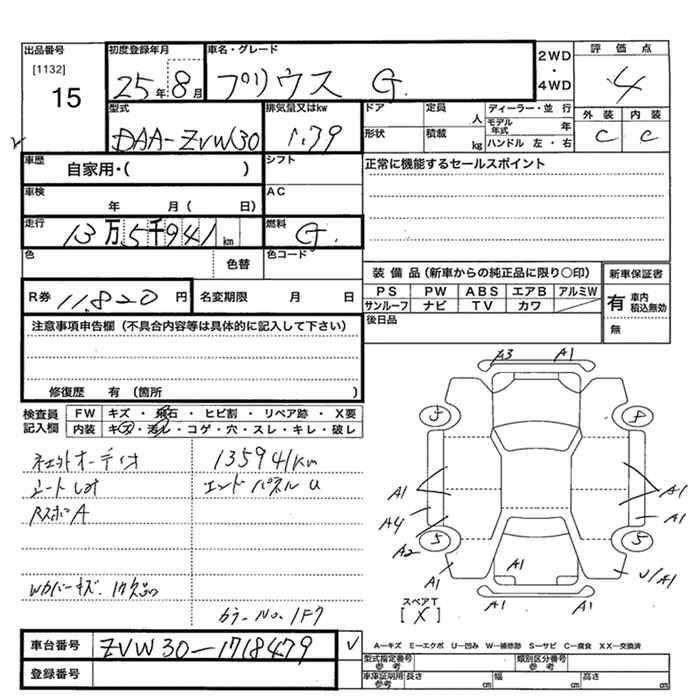 出品番号 初度登録年月 車名・グレード 2WD・4WD 評価点
[1132] 15 25年8月 プリウス G 4
型式 排気量又はkw ドア 定員 人 ディーラー・並行 外装 内装
DAA-ZVW30 1.79 形状 積載 kg モデル年式 年 ハンドル 左・右 C C
車歴 自家用・( ) シフト 正常に機能するセールスポイント
車検 年 月( 日) AC
走行 13万5千941km 燃料 G.
色 色替 色コード
装備品(新車からの純正品に限り○印) 新車保証書
R券 11,820円 名変期限 月 日
PS PW ABS エアB アルミW 有 車内 積込無効
サンルーフ ナビ TV カワ 無
注意事項申告欄(不具合内容等は具体的に記入して下さい) 後日品
修復歴 有(箇所 )
検査員記入欄 FW キズ・飛石・ヒビ割・リペア跡・X要
内装 キズ・汚レ・コゲ・穴・スレ・キレ・破レ
オーディオ 135941km
エンドパネルU
RスポA
カラーNo.1F7
A3 A1
5 8
A1 A1
A4 A1
A2
5 5
A1 A1 U/A1
A1 A1
スペアT
[X]
車台番号 ZVW30-1718479 ✓
登録番号
A-キズ E-エクボ U-凹み W-補修跡 S-サビ C-腐食 XX-交換済
型式指定番号 参考 類別区分番号 参考
車庫証明用 参考 長さ cm 幅 cm 高さ cm